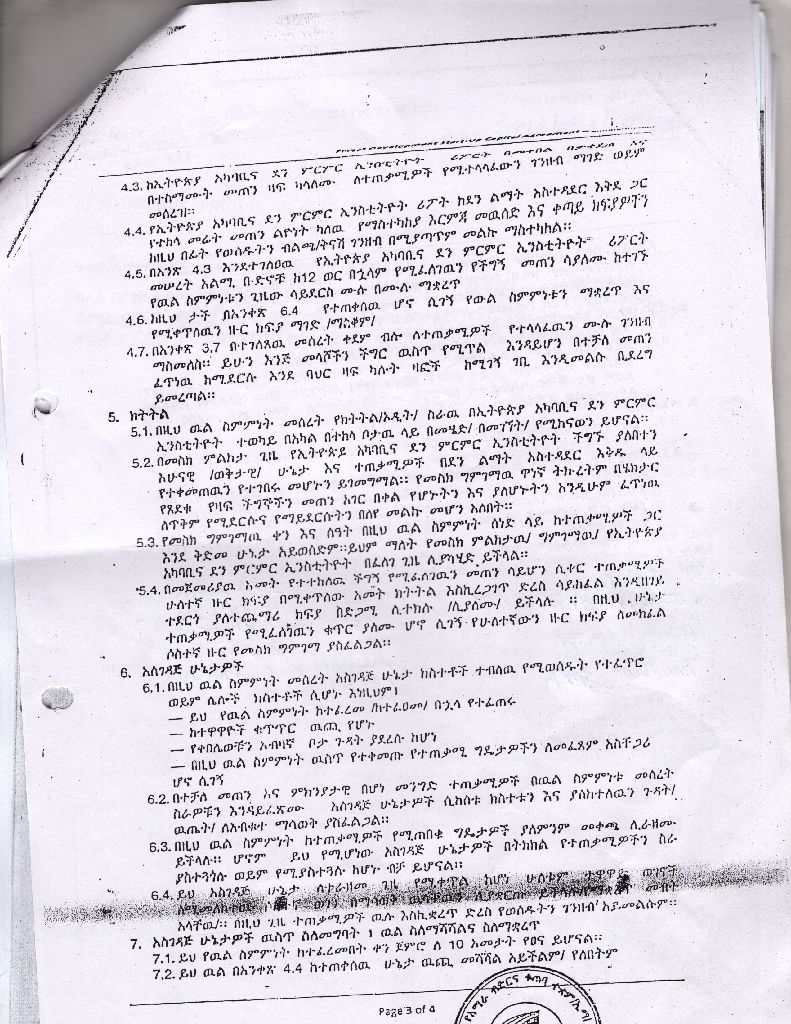 Forest Development Start-up Capital Agreement
4.3. ከኢትዮጵያ አካባቢና ደን ምርምር ኢንስቲትዩት ሪፖርት በመቀበል
በተስማሙት መጠን ዛፍ ካላለሙ ለተጠቃሚዎች የሚተላለፈውን ገንዘብ ማገድ ወይም
መሰረዝ፣
4.4. የኢትዮጵያ አካባቢና ደን ምርምር ኢንስቲትዮት ሪፖት ከደን ልማት አስተዳደር እቅድ ጋር
የተከላ መሬት መጠን ልዩነት ካለዉ የማስተካከያ እርምጃ መዉሰድ እና ቀጣይ ክፍያዎችን
ከዚህ በፊት የወሰዱትን ብልጫ/ትናሽ ገንዘብ በሚያጣጥም መልኩ ማስተካከል፡፡
4.5. በአንጽ 4.3 እንደተገለፀዉ የኢትዮጵያ አካባቢና ደን ምርምር ኢንስቲትዮት ሪፖርት
መሠረት አልሚ ቡድኖቹ ከ12 ወር በኋላም የሚፈለገዉን የችግኝ መጠን ሳያለሙ ከተገኙ
የዉል ስምምነቱን ጊዜው ሳይደርስ ሙሉ በሙሉ ማቋረጥ
4.6. ከዚህ ታች በአንቀጽ 6.4 የተጠቀሰዉ ሆኖ ሲገኝ የውል ስምምነቱን ማቋረጥ እና
የሚቀጥለዉን ዙር ክፍያ ማገድ /ማስቆም/
4.7. በአንቀጽ 3.7 በተገለጸዉ መሰረት ቀደም ብሎ ለተጠቃሚዎች የተላላፈዉን ሙሉ ገንዘብ
ማስመለስ፡፡ ይሁን እንጅ መላሾችን ችግር ዉስጥ የሚጥል እንዳይሆን በተቻለ መጠን
ፈጥነዉ ከሚደርሱ እንደ ባህር ዛፍ ካሉት ዛፎች ከሚገኝ ገቢ እንዲመልሱ ቢደረግ
ይመረጣል፡፡
5. ክትትል
5.1. በዚህ ዉል ስምምነት መሰረት የክትትል/ኦዲት/ ስራዉ በኢትዮጵያ አካባቢና ደን ምርምር
ኢንስቲትዮት ተወካይ በአካል በተከላ ቦታዉ ላይ በመሄድ/ በመገኘት/ የሚከናወን ይሆናል፡፡
5.2. በመስክ ምልከታ ጊዜ የኢትዮጵይ አካባቢና ደን ምርምር ኢንስቲትዮት ችግኙ ያለበትን
አሁናዊ /ወቅታዊ/ ሁኔታ እና ተጠቃሚዎች በደን ልማት አስተዳደር እቅዱ ላይ
የተቀመጠዉን የተገበሩ መሆኑን ይገመግማል፡፡ የመስክ ግምገማዉ ዋነኛ ትኩረትም በሄክታር
የጸደቁ የዛፍ ችግኞችን መጠን አገር በቀል የሆኑትን እና ያልሆኑትን እንዲሁም ፈጥነዉ
ለጥቅም የሚደርሱና የማይደርሱትን በለየ መልኩ መሆን አለበት፡፡
5.3. የመስክ ግምገማዉ ቀን እና ሰዓት በዚህ ዉል ስምምነት ሰነድ ላይ ከተጠቃሚዎች ጋር
እንደ ቅድመ ሁኔታ አይወሰድም፡፡ይህም ማለት የመስክ ምልከታዉ/ ግምገማዉ/ የኢትዮጵያ
አካባቢና ደን ምርምር ኢንስቲትዮት በፈለገ ጊዜ ሊያካሂድ ይችላል፡፡
5.4. በመጀመሪያዉ አመት የተተከለዉ ችግኝ የሚፈለገዉን መጠን ሳይሆን ሲቀር ተጠቃሚዎች
ሁለተኛ ዙር ክፍያ በሚቀጥለው አመት ክትትል እስኪረጋገጥ ድረስ ሳይከፈል እንዲዘገይ
ተደርጎ ያለተጨማሪ ክፍያ በድጋሚ ሊተክሉ /ሊያለሙ/ ይችላሉ ፡፡ በዚህ ሁኔታ
ተጠቃሚዎች የሚፈለገዉን ቁጥር ያለሙ ሆኖ ሲገኝ የሁለተኛውን ዙር ክፍያ ለመክፈል
ሶስተኛ ዙር የመስክ ግምገማ ያስፈልጋል፡፡
6. አስገዳጅ ሁኔታዎች
6.1. በዚህ ዉል ስምምነት መሰረት አስገዳጅ ሁኔታ ክስተቶች ተብለዉ የሚወሰዱት የተፈጥሮ
ወይም ሌሎች ክስተቶች ሲሆኑ እነዚህም፤
— ይህ የዉል ስምምነት ከተፈረመ /ከተፈፀመ/ በኃላ የተፈጠሩ
— ከተዋዋዮች ቁጥጥር ዉጪ የሆኑ
— የቀበሌዉቹን አብዛኛ ቦታ ጉዳት ያደረሱ ከሆነ
— በዚህ ዉል ስምምነት ዉስጥ የተቀመጡ የተጠቃሚ ግዴታዎችን ለመፈጸም አስቸጋሪ
ሆኖ ሲገኝ
6.2. በተቻለ መጠን እና ምክንያታዊ በሆነ መንግድ ተጠቃሚዎች በዉል ስምምነቱ መሰረት
ስራዎቹን እንዳይፈጽሙ አስገዳጅ ሁኔታዎች ሲከሰቱ ክስተቱን እና ያስከተለዉን ጉዳት/
ዉጤት/ ለአብቁተ ማሳወቅ ያስፈልጋል፡፡
6.3. በዚህ ዉል ስምምነት ከተጠቃሚዎች የሚጠበቁ ግዴታዎች ያለምንም መቀጫ ሊራዘሙ
ይችላሉ፡፡ ሆኖም ይህ የሚሆነው አስገዳጅ ሁኔታዎች በትክክል የተጠቃሚዎችን ስራ
ያስተጓጎሉ ወይም የሚያስተጓጉሉ ከሆኑ ብቻ ይሆናል፡፡
6.4. ይህ አስገዳጅ ሁኔታ ለተራዘመ ጊዜ የሚቀጥል ከሆነ ሁሉም ተዋዋይ ወገኖች
ለሚመለከተዉ ወገን በማሳወቅ ሊያቋርጡ ይችላሉ መብት
አላቸዉ፡፡ በዚህ ጊዜ ተጠቃሚዎች ዉሉ እስኪቋረጥ ድረስ የወሰዱትን ገንዘብ አይመልሱም፡፡
7. አስገዳጅ ሁኔታዎች ዉስጥ ስለመግባት 1 ዉል ስለማሻሻልና ስለማቋረጥ
7.1. ይህ የዉል ስምምነት ከተፈረመበት ቀን ጀምሮ ለ 10 አመታት የፀና ይሆናል፡፡
7.2. ይህ ዉል በአንቀጽ 4.4 ከተጠቀሰዉ ሁኔታ ዉጪ መሻሻል አይችልም/ የለበትም
Page 3 of 4
ብድርና ቁጠባ ተቋም